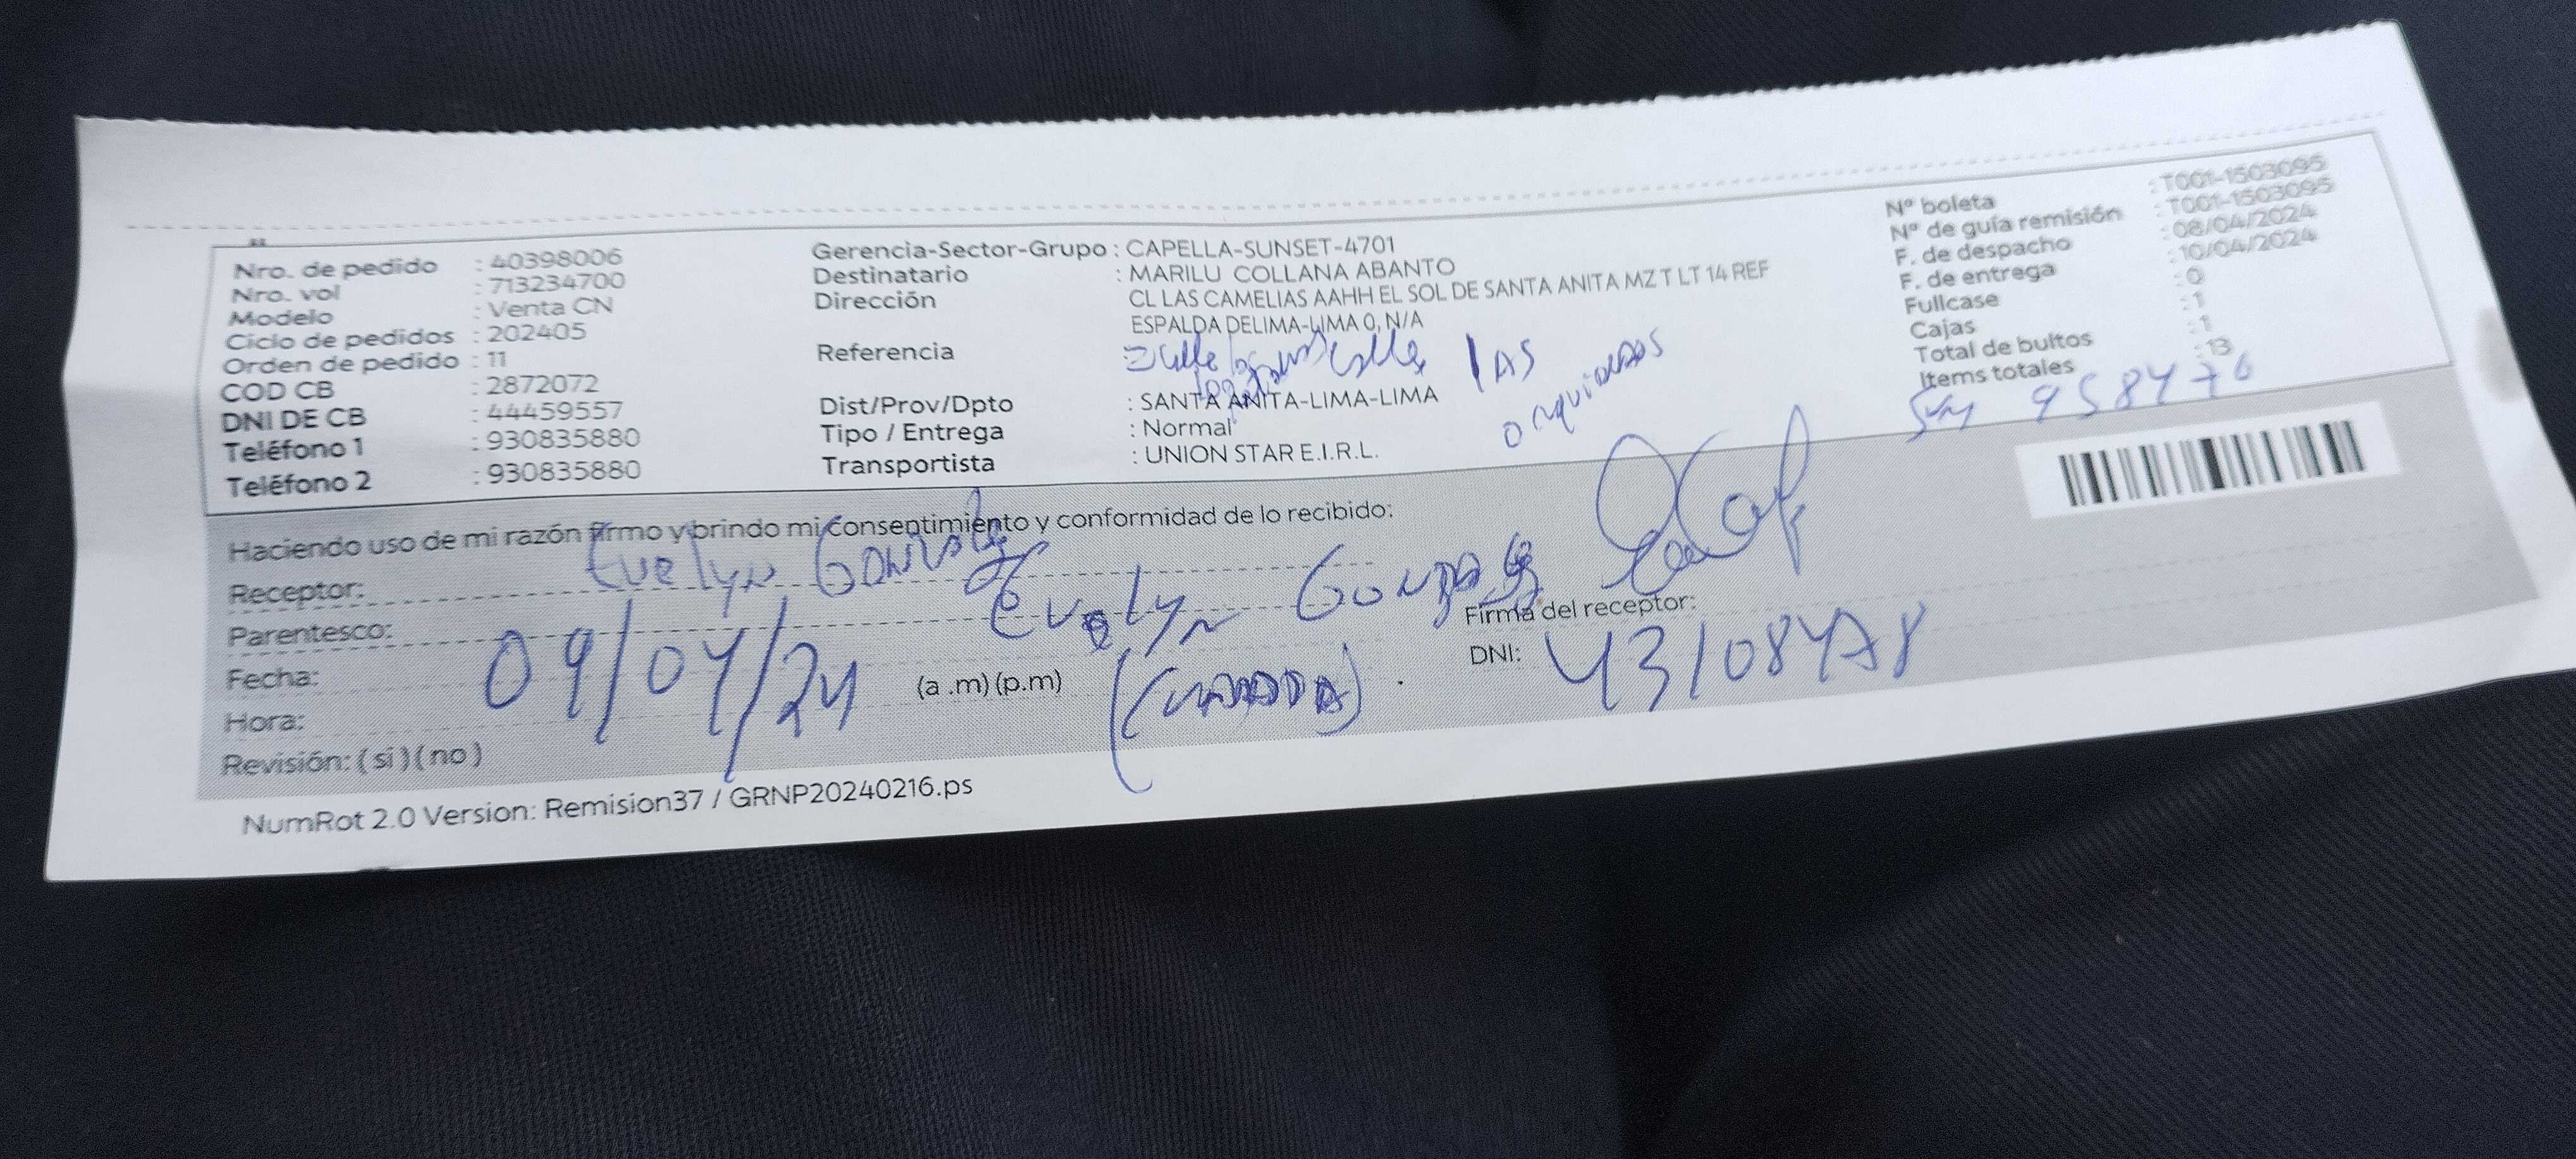 Nro. de pedido : 40398006
Nro. vol : 713234700
Modelo : Venta CN
Ciclo de pedidos : 202405
Orden de pedido : 11
COD CB : 2872072
DNI DE CB : 44459557
Teléfono 1 : 930835880
Teléfono 2 : 930835880
Gerencia-Sector-Grupo : CAPELLA-SUNSET-4701
Destinatario : MARILU COLLANA ABANTO
Dirección CL LAS CAMELIAS AAHH EL SOL DE SANTA ANITA MZ T LT 14 REF
ESPALDA DELIMA-LIMA 0, N/A
Referencia : calle las
orquideas
Dist/Prov/Dpto : SANTA ANITA-LIMA-LIMA
Tipo / Entrega : Normal
Transportista : UNION STAR E.I.R.L.
Nº boleta : T001-1503095
Nº de guía remisión : T001-1503095
F. de despacho : 08/04/2024
F. de entrega : 10/04/2024
Fullcase : 0
Cajas : 1
Total de bultos : 1
Items totales : 13
958476
Haciendo uso de mi razón firmo y brindo mi consentimiento y conformidad de lo recibido:
Receptor: Evelyn Gonzales
Parentesco: Evelyn Gonzales
Firma del receptor:
Fecha: 09/04/24 (a .m) (p.m)
DNI: 43108478
Hora:
Revisión: ( si ) ( no )
NumRot 2.0 Version: Remision37 / GRNP20240216.ps